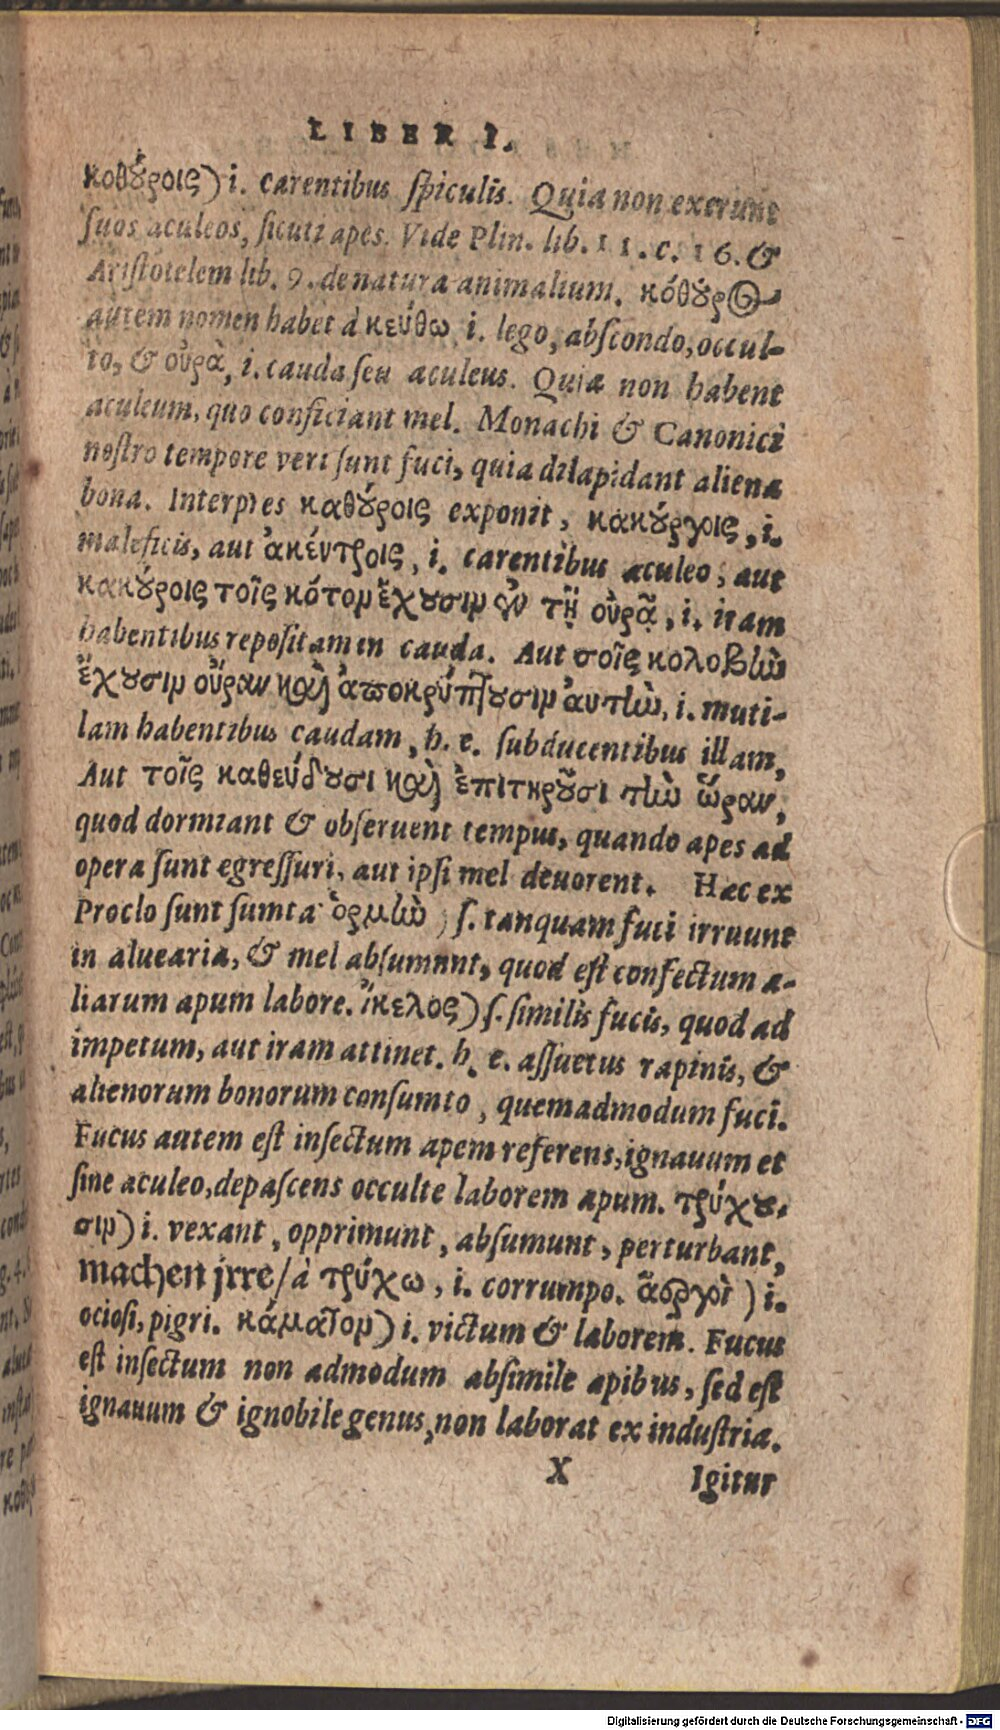 LIBER I.
κοθούροις) i. carentibus ſpiculis. Quia non exerunt
ſuos aculeos, ſicuti apes. Vide Plin. lib. 11. c. 16. &
Ariſtotelem lib. 9. de natura animalium. κόθουρος
autem nomen habet à κεύθω, i. tego, abſcondo, occul-
to, & οὐρὰ, i. cauda ſeu aculeus. Quia non habent
aculeum, quo conficiant mel. Monachi & Canonici
noſtro tempore veri ſunt fuci, quia dilapidant aliena
bona. Interpres καθούροις exponit, κακούργοις, i.
maleficis, aut ἀκέντροις, i. carentibus aculeo, aut
κακούροις τοῖς κότον ἔχουσιν ἐν τῇ οὐρᾷ, i. iram
habentibus repoſitam in cauda. Aut τοῖς κολοβὴν
ἔχουσιν οὔραν καὶ ἀποκρύπτουσιν ἀυτὴν, i. muti-
lam habentibus caudam, h. e. ſubducentibus illam,
Aut τοῖς καθεύδουσι καὶ ἐπιτηροῦσι τὴν ὥραν,
quod dormiant & obſeruent tempus, quando apes ad
opera ſunt egreſſuri, aut ipſi mel deuorent. Hæc ex
Proclo ſunt ſumta ὁρμὴν) ſ. tanquam fuci irruunt
in aluearia, & mel abſumunt, quod eſt confectum a-
liarum apum labore. ἴκελος) ſ. ſimilis fucis, quod ad
impetum, aut iram attinet. h. e. aſſuetus rapinis, &
alienorum bonorum conſumto, quemadmodum fuci.
Fucus autem eſt inſectum apem referens, ignauum et
ſine aculeo, depaſcens occulte laborem apum. τρύχου-
σιν) i. vexant, opprimunt, abſumunt, perturbant,
machen jrre/ à τρύχω, i. corrumpo. ἄεργοὶ) i.
ocioſi, pigri. κάματον) i. victum & laborem. Fucus
eſt inſectum non admodum abſimile apibus, ſed eſt
ignauum & ignobile genus, non laborat ex induſtria.
X Igitur
Digitalisierung gefördert durch die Deutsche Forschungsgemeinschaft - DFG